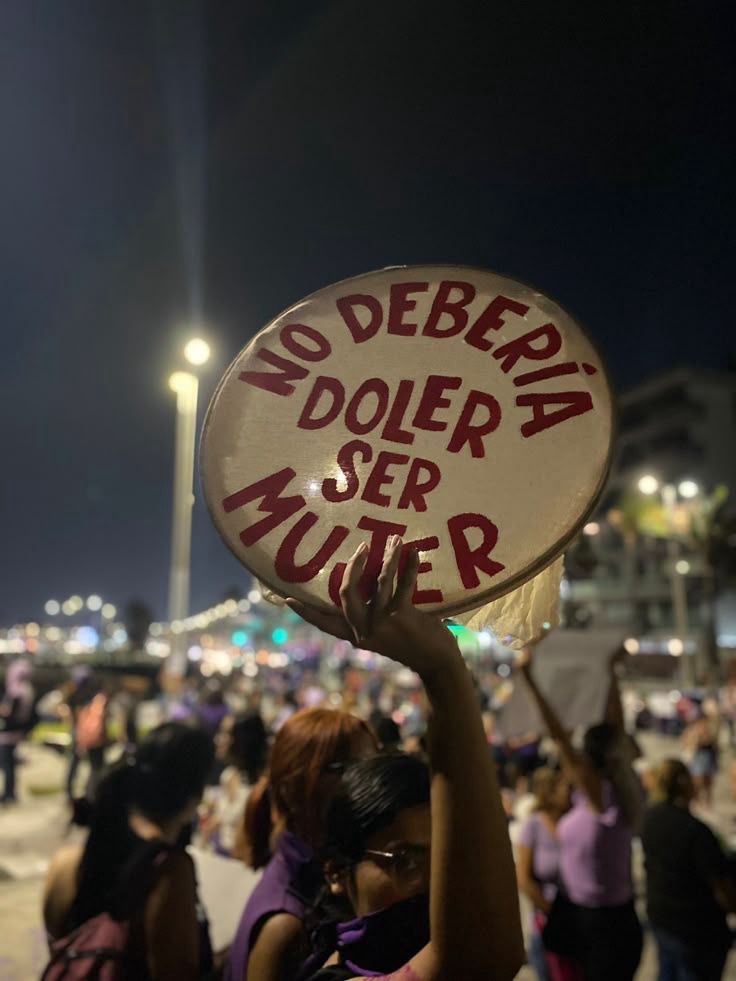 NO DEBERÍA
DOLER
SER
MUJER